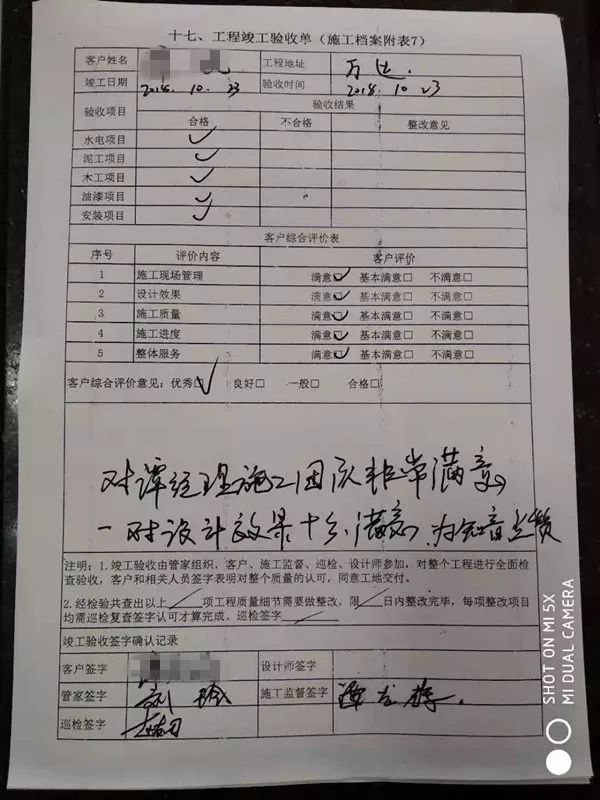 十七、工程竣工验收单（施工档案附表7）
客户姓名 工程地址 万达
竣工日期 2018.10.23 验收时间 2018.10.23
验收项目 验收结果
合格 不合格 整改意见
水电项目 ✓
泥工项目 ✓
木工项目 ✓
油漆项目 ✓
安装项目 ✓
客户综合评价表
序号 评价内容 客户评价
1 施工现场管理 满意☑ 基本满意□ 不满意□
2 设计效果 满意☑ 基本满意□ 不满意□
3 施工质量 满意☑ 基本满意□ 不满意□
4 施工进度 满意☑ 基本满意□ 不满意□
5 整体服务 满意☑ 基本满意□ 不满意□
客户综合评价意见：优秀☑ 良好□ 一般□ 合格□
对谭经理施工团队非常满意
对设计效果十分满意，为知音点赞
注明：1.竣工验收由管家组织，客户、施工监督、巡检、设计师参加，对整个工程进行全面检
查验收，客户和相关人员签字表明对整个质量的认可，同意工地交付。
2.经检验共查出以上／项工程质量细节需要做整改，限／日内整改完毕，每项整改项目
均需巡检复查签字认可才算完成，巡检签字／
竣工验收签字确认记录
客户签字 设计师签字
管家签字 施工监督签字
巡检签字
SHOT ON MI 5X
MI DUAL CAMERA